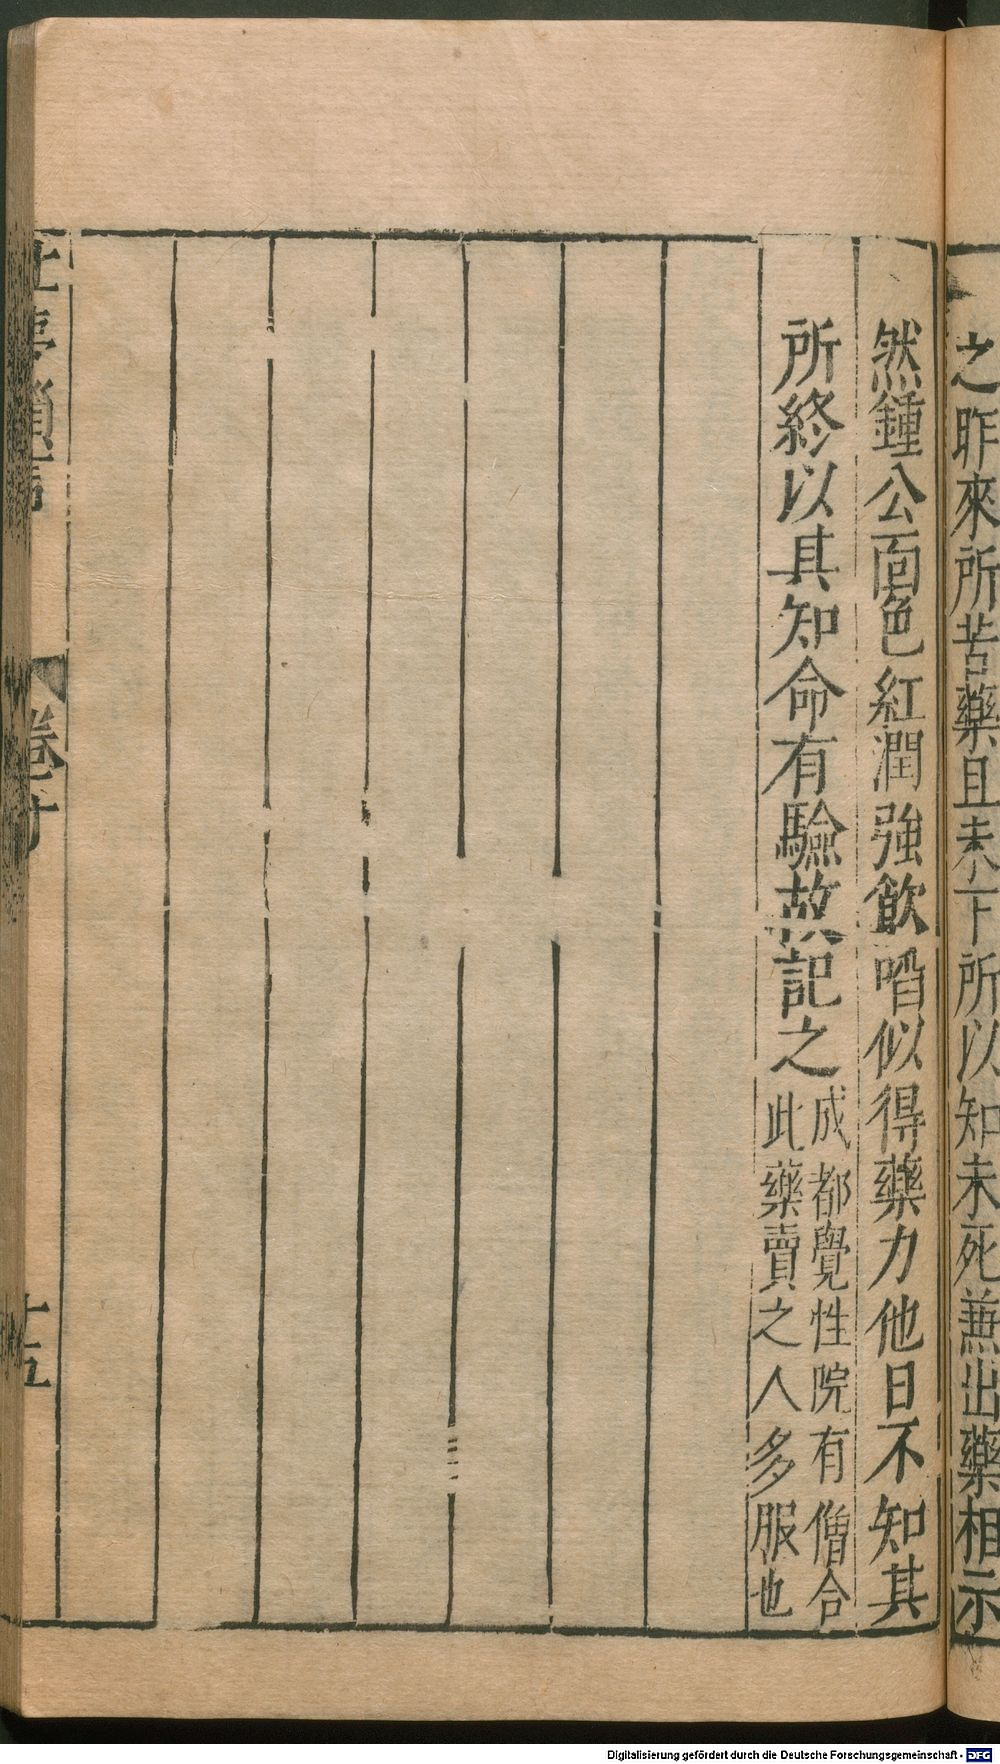 之昨來所苦藥且未下所以知未死兼出藥相示
然鍾公面色紅潤強飲啗似得藥力他日不知其
所終以其知命有驗故記之
成都覺性院有僧合
此藥賣之人多服也
卷十
十五
Digitalisierung gefördert durch die Deutsche Forschungsgemeinschaft - DFG